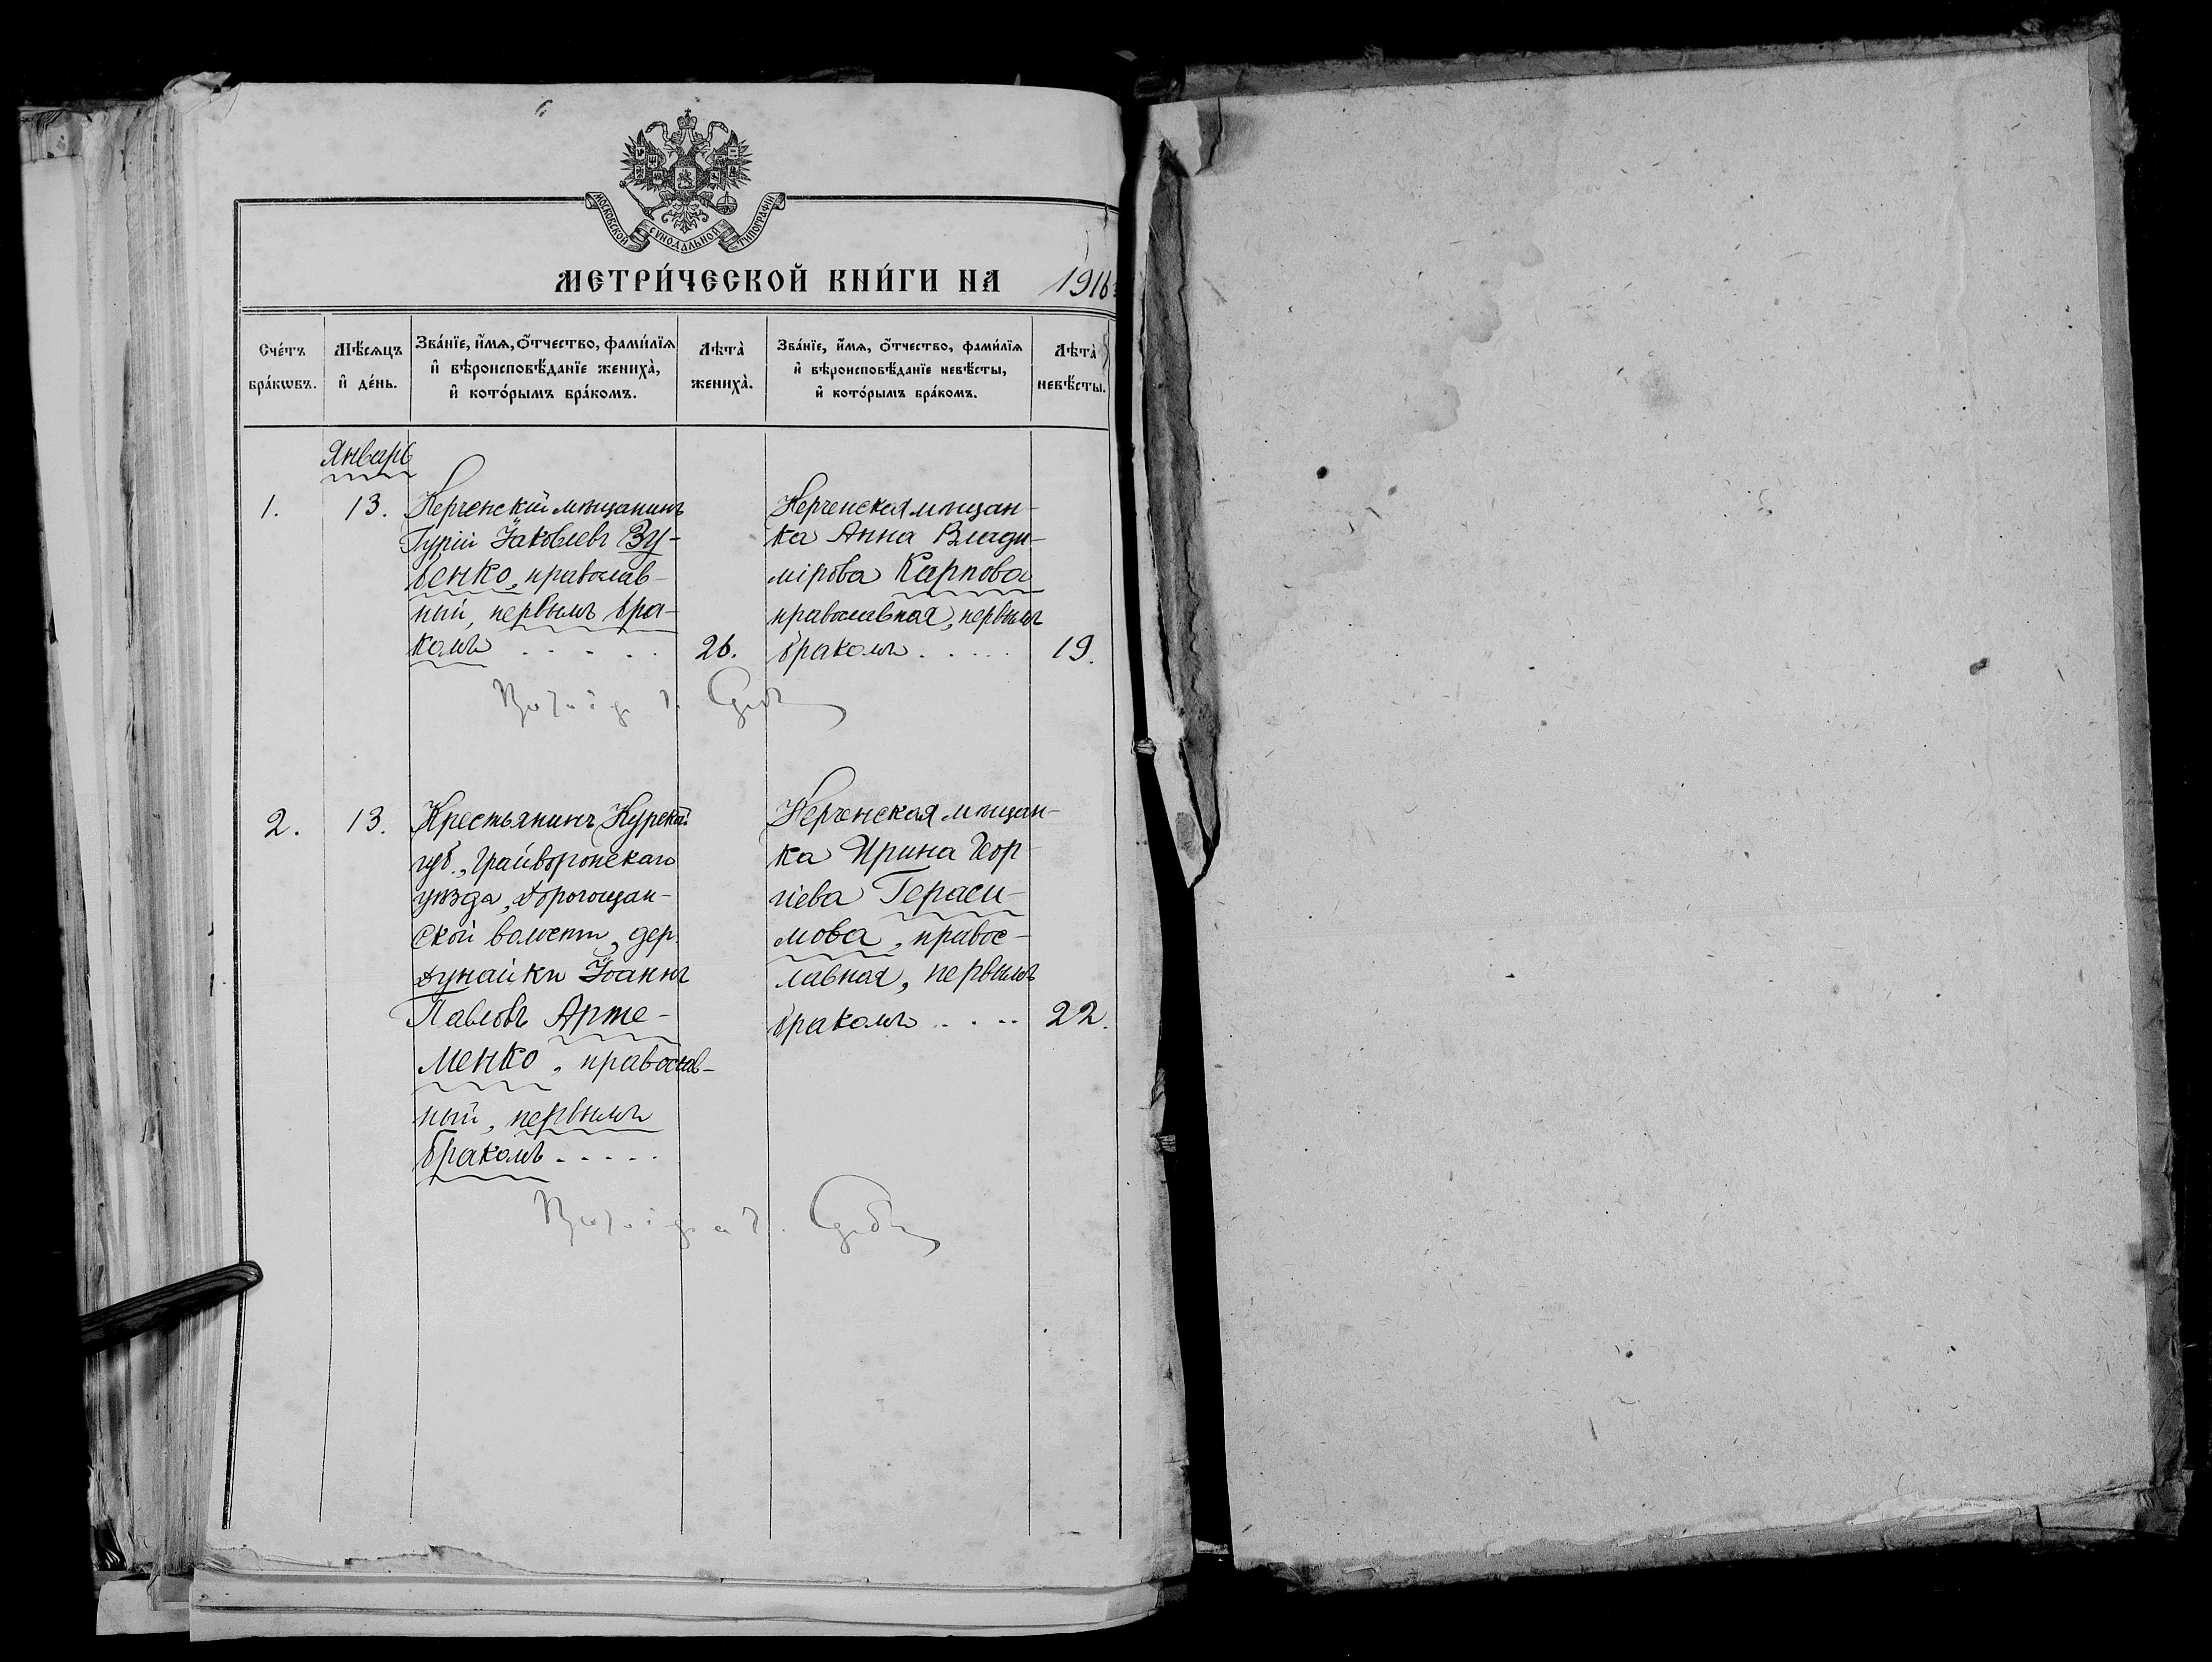 МОСКОВСКОЙ СѴНОДАЛЬНОЙ ТИПОГРАФІИ
МЕТРИ́ЧЕСКОЙ КНИ́ГИ НА 1916
Сче́тъ бра́кѡвъ.
Мѣ́сѧцъ и҆ де́нь.
Зва́нїе, и҆́мѧ, ѻ҆́тчество, фами́лїѧ
и҆ вѣроисповѣ́данїе жениха̀,
и҆ кото́рымъ бра́комъ.
Лѣта̀ жениха̀.
Зва́нїе, и҆́мѧ, ѻ҆́тчество, фами́лїѧ
и҆ вѣроисповѣ́данїе невѣ́сты,
и҆ кото́рымъ бра́комъ.
Лѣта̀ невѣ́сты.
Январь
1.
13.
Керченскій мѣщанинъ
Гурій Іаковлевъ Зу-
бенко, православ-
ный, первымъ бра-
комъ . . . . .
26.
Керченская мѣщан-
ка Анна Влади-
мірова Карпова
православная, первымъ
бракомъ . . . . .
19.
2.
13.
Крестьянинъ Курской
губ., Грайворонскаго
уѣзда, Дорогощан-
ской волости, дер.
Дунайки Іоаннъ
Павловъ Арте-
менко, православ-
ный, первымъ
бракомъ - - - - -
Керченская мѣщан-
ка Ирина Геор-
гіева Гераси-
мова, правос-
лавная, первымъ
бракомъ . . . .
22.